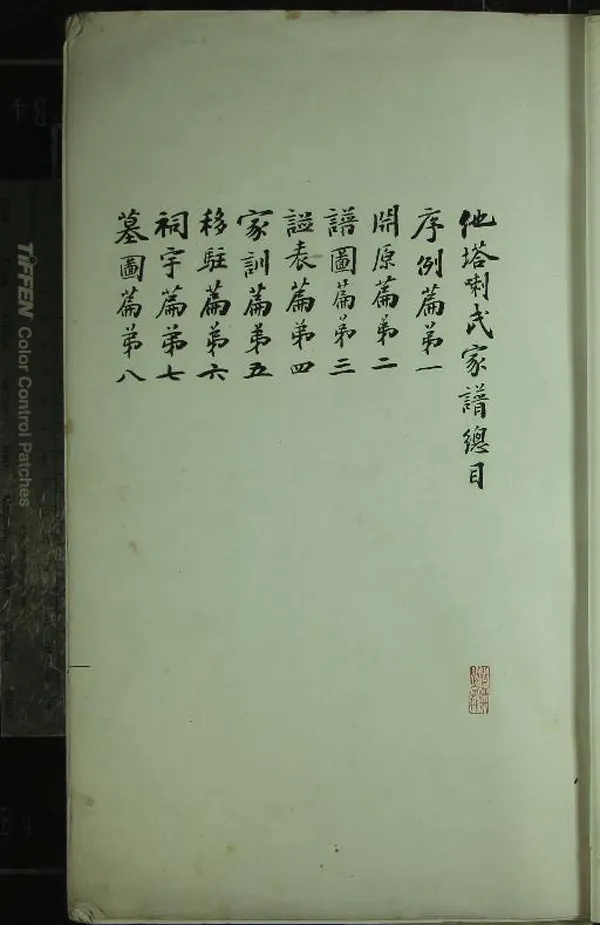 他塔喇氏家譜總目
序例篇第一
開原篇第二
譜圖篇第三
譜表篇第四
家訓篇第五
移駐篇第六
祠宇篇第七
墓圖篇第八
TIFFEN Color Control Patches